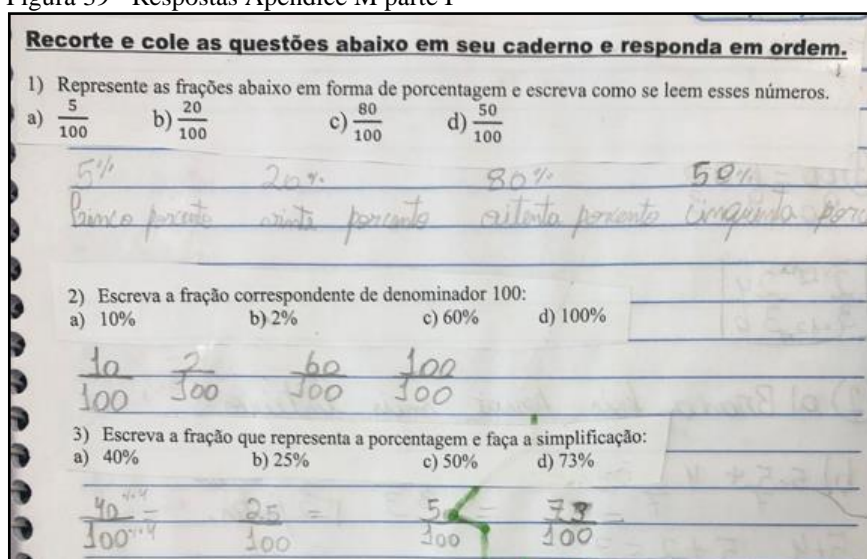 Figura 39 - Respostas Apêndice M parte I
Recorte e cole as questões abaixo em seu caderno e responda em ordem.
1) Represente as frações abaixo em forma de porcentagem e escreva como se leem esses números.
a) 5/100 b) 20/100 c) 80/100 d) 50/100
5% 20% 80% 50%
porcento porcento oitenta porcento cinquenta
2) Escreva a fração correspondente de denominador 100:
a) 10% b) 2% c) 60% d) 100%
10/100 2/100 60/100 100/100
3) Escreva a fração que representa a porcentagem e faça a simplificação:
a) 40% b) 25% c) 50% d) 73%
40/100 = 25/100 = 5/100 73/100 =